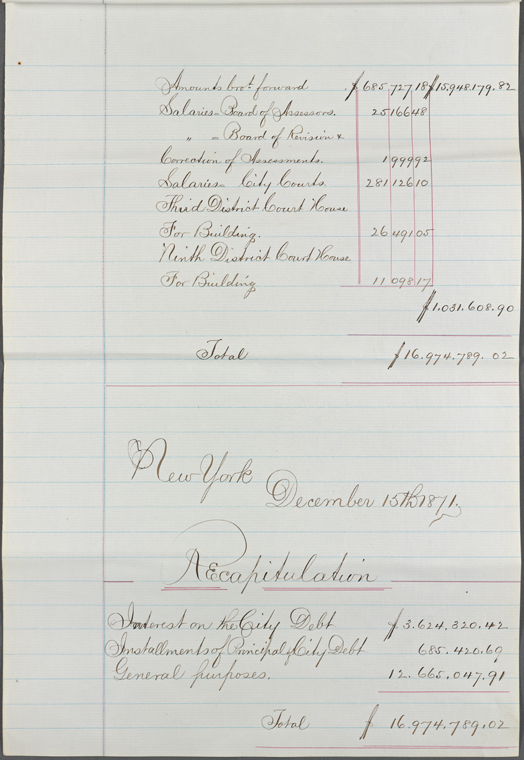 Amounts bro.t forward $685.727 18 $15.948.179.82
Salaries = Board of Assessors. 25166 48
" = Board of Revision &
Correction of Assessments. 1999 92
Salaries = City Courts 281126 10
Third District Court House
For Building. 26491 05
Ninth District Court House
For Building 11098 17
$1.031.608.90
Total $16.974.789.02
New York
December 15th 1871.
Recapitulation
Interest on the City Debt $3.624.320.42
Installments of Principal of City Debt 685.420.69
General purposes. 12.665.047.91
Total $16.974.789.02